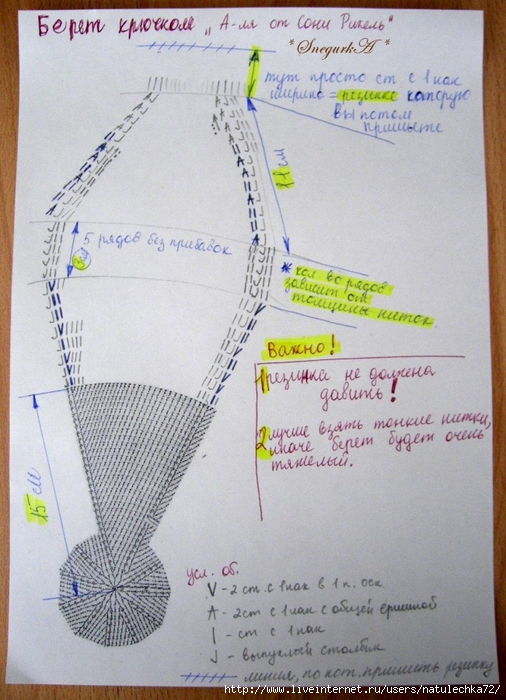 Берет крючком „А-ля от Сони Рикель“
*SnegurkA*
тут просто ст с 1 нак
ширина = резинке которую
вы потом
пришьете
11 см
5 рядов без прибавок
* кол во рядов
зависит от
толщины ниток.
Важно!
1 резинка не должна
давить!
2 лучше взять тонкие нитки,
иначе берет будет очень
тяжелый.
15 см
усл. об.
V - 2 ст. с 1 нак в 1 п. осн
Λ - 2 ст с 1 нак с общей вершиной
| - ст с 1 нак
J - выпуклый столбик
линия, по кот. пришить резинку
http://www.liveinternet.ru/users/natulechka72/